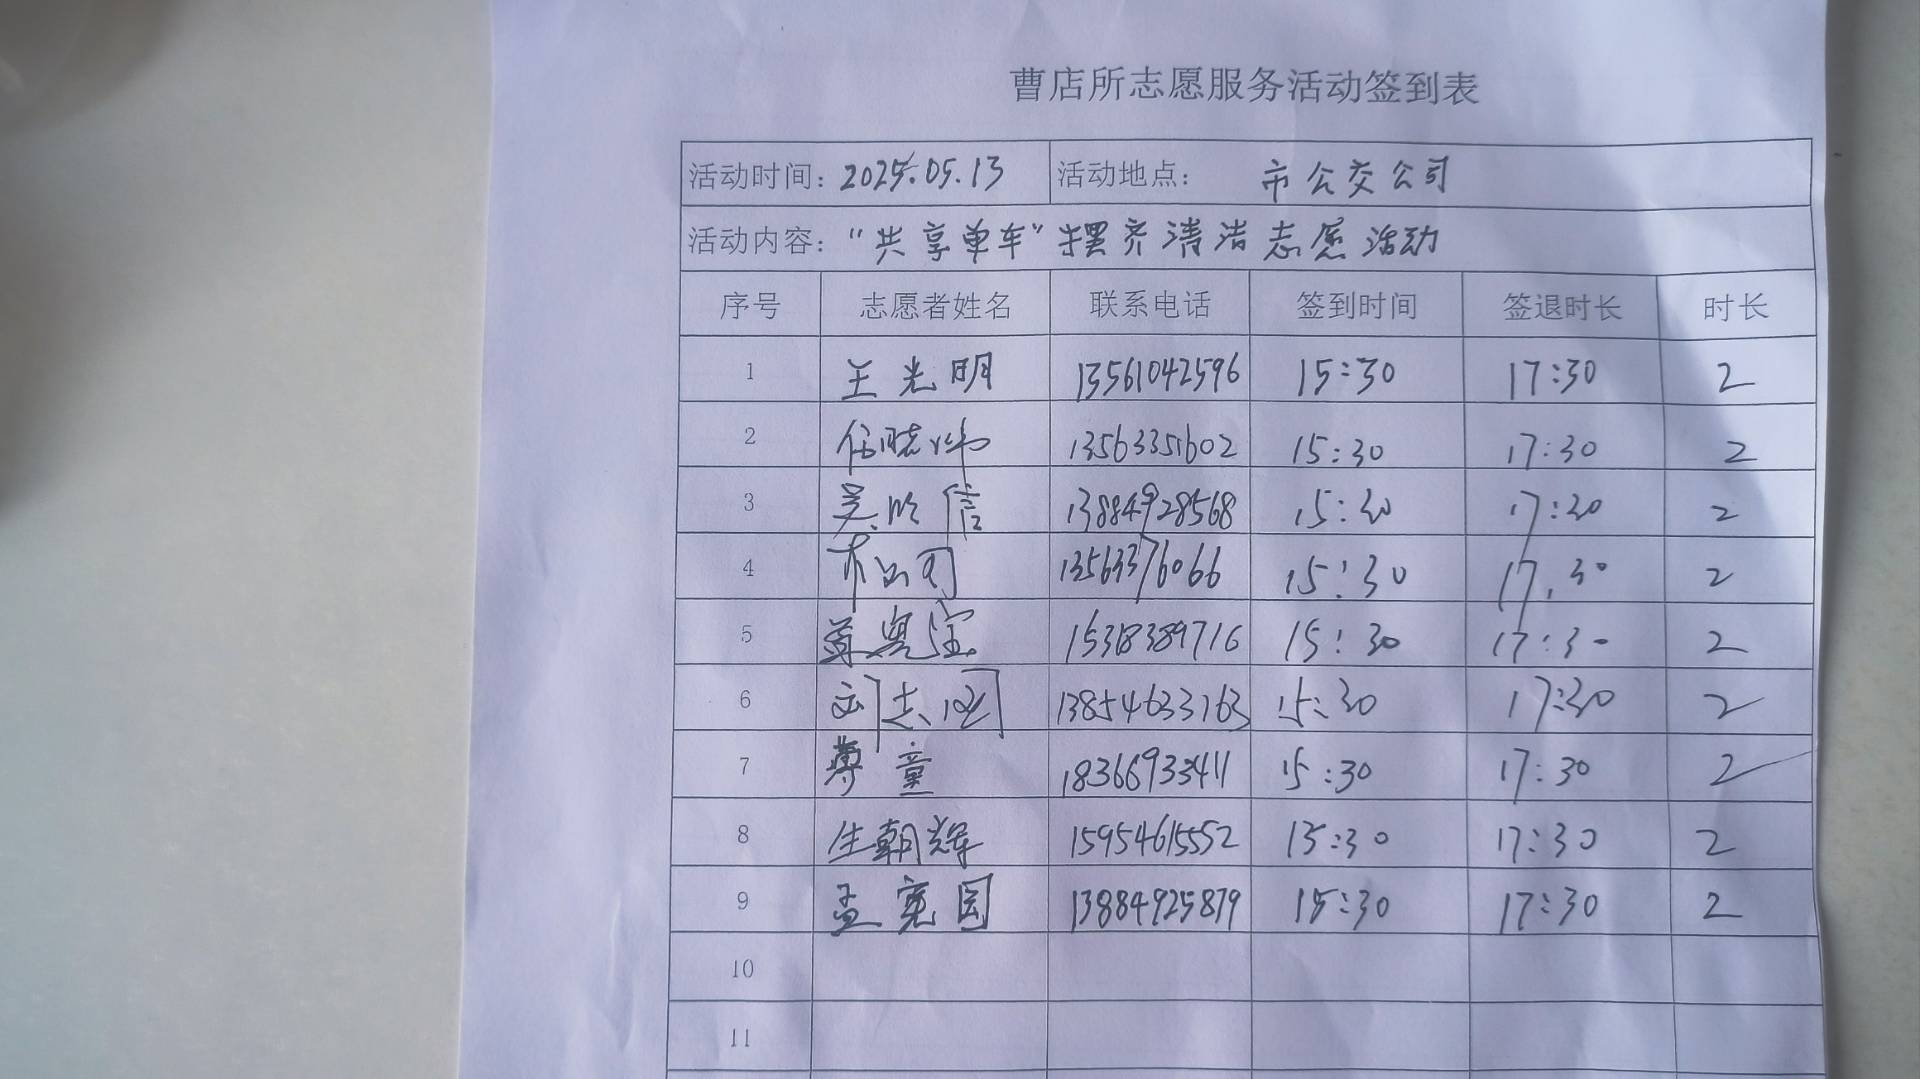 曹店所志愿服务活动签到表
活动时间: 2025.05.13 活动地点: 市公交公司
活动内容: “共享单车”摆齐清洁志愿活动
序号 志愿者姓名 联系电话 签到时间 签退时长 时长
1 王光明 13561042596 15:30 17:30 2
2 任晓炜 13563351602 15:30 17:30 2
3 吴吟信 13884928568 15:30 17:30 2
4 13563376066 15:30 17:30 2
5 15318389716 15:30 17:30 2
6 刘志国 13854633763 15:30 17:30 2
7 薄童 18366933411 15:30 17:30 2
8 生朝辉 15954615552 15:30 17:30 2
9 孟宪国 13884925879 15:30 17:30 2
10
11